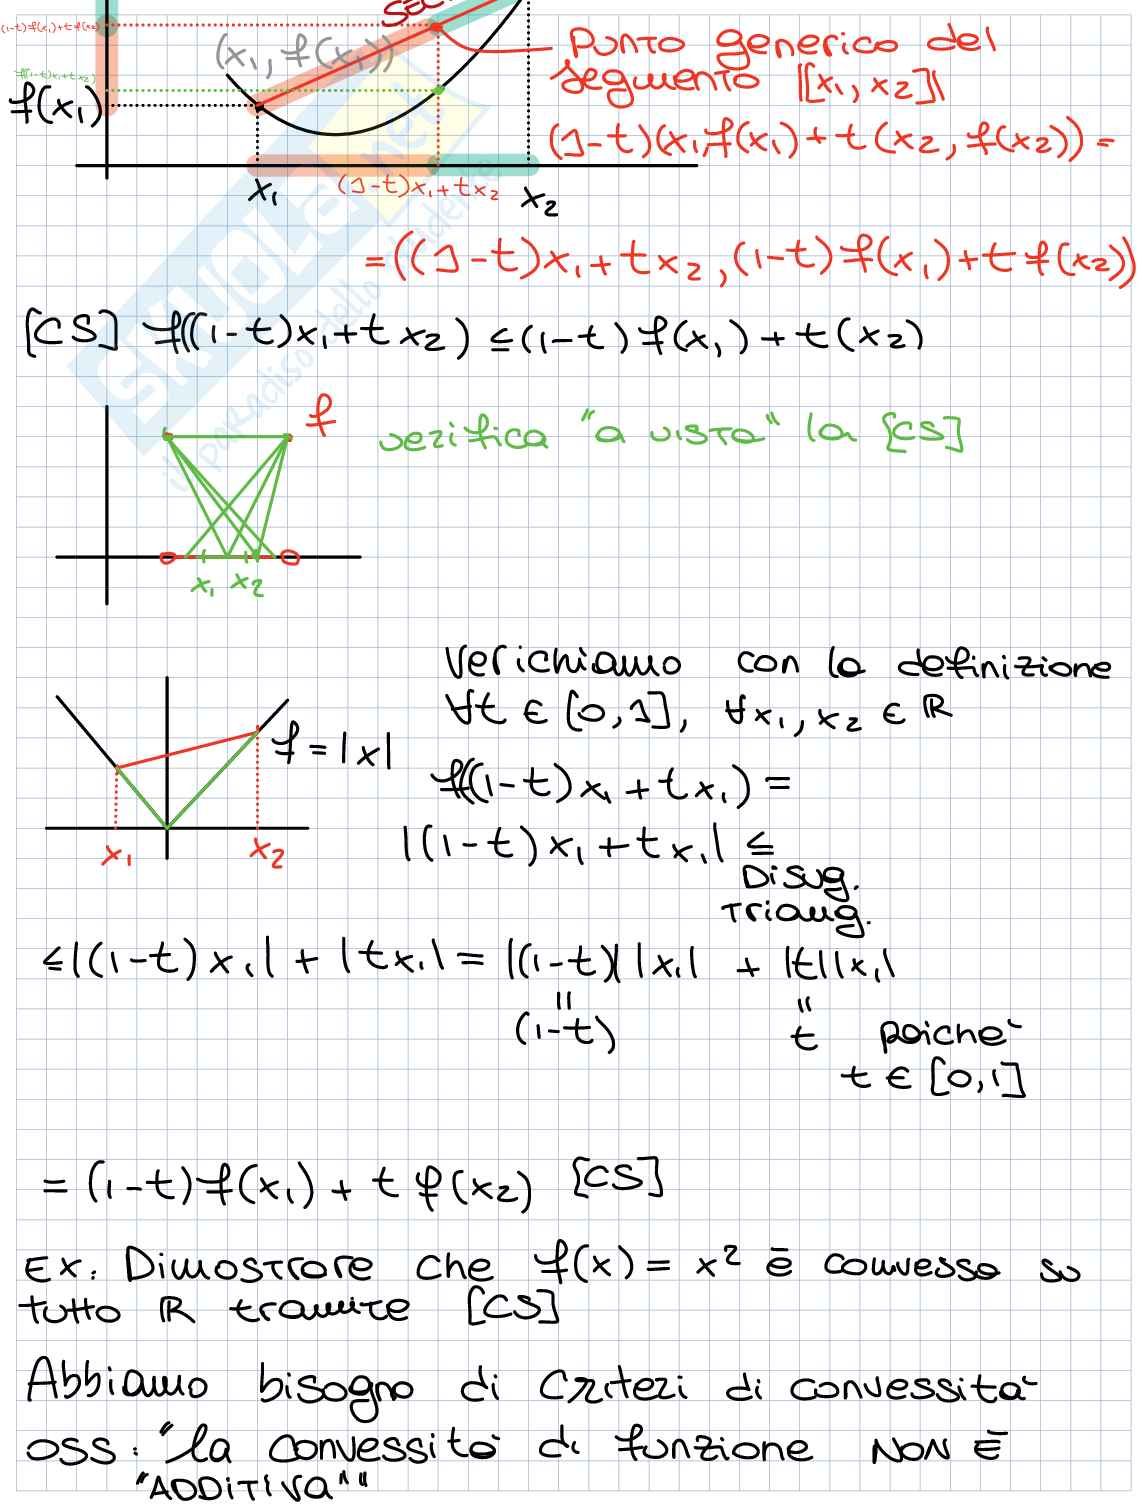 SEC
(1-t)f(x₁)+t f(x₂)
(x₁, f(x₁))
Punto generico del
segmento [[x₁, x₂]]
f((1-t)x₁+tx₂)
f(x₁)
(1-t)(x₁,f(x₁)+t(x₂, f(x₂)) =
x₁
(1-t)x₁+tx₂
x₂
=((1-t)x₁+tx₂,(1-t)f(x₁)+t f(x₂))
[CS] f((1-t)x₁+tx₂) ≤(1-t) f(x₁) + t(x₂)
f
verifica "a vista" la [CS]
x₁ x₂
Verichiamo con la definizione
∀t ∈ [0,1], ∀x₁, x₂ ∈ ℝ
f = |x|
f((1-t)x₁+tx₁) =
|(1-t)x₁+tx₁| ≤
x₁ x₂
Disug.
Triang.
≤|(1-t)x₁| + |tx₁| = |(1-t)| |x₁| + |t||x₁|
" "
(1-t) t poiche`
t ∈ [0,1]
= (1-t)f(x₁) + t f(x₂) [CS]
Ex. Dimostrare che f(x) = x² è convessa su
tutto ℝ tramite [CS]
Abbiamo bisogno di criteri di convessità
OSS: "la convessità di funzione NON È
"ADDITIVA""
SKUOLA.net
il paradiso dello studente